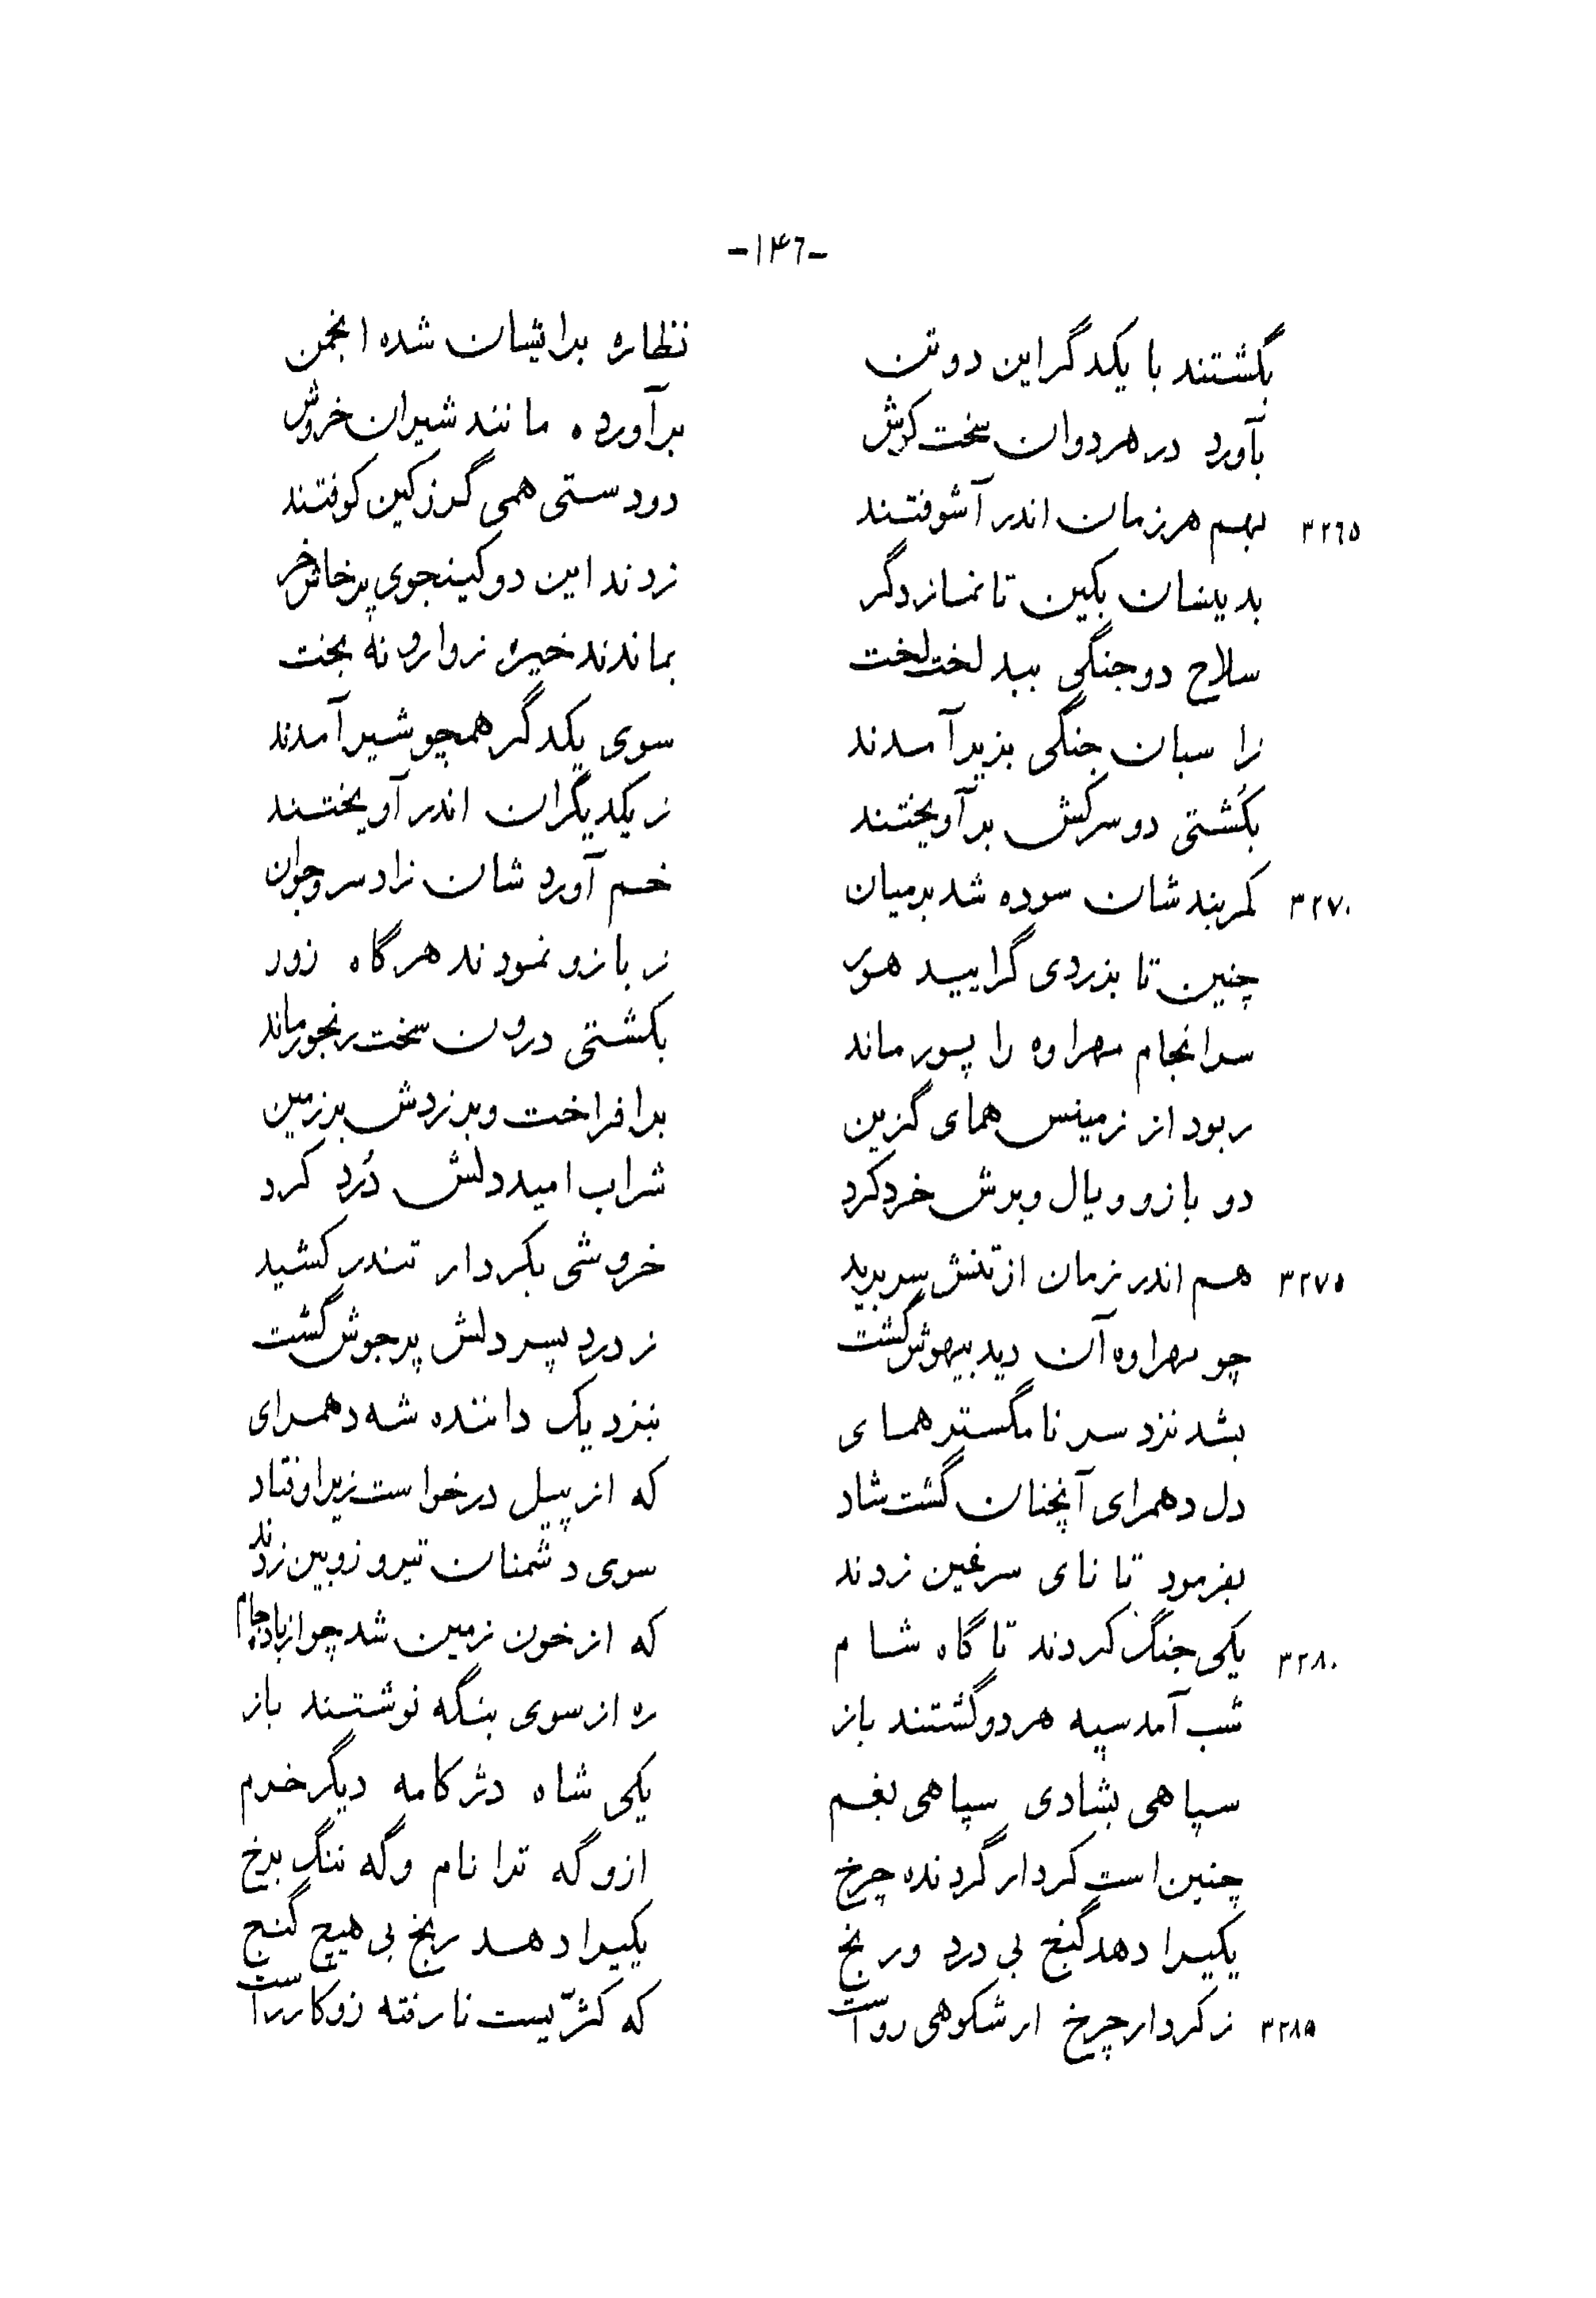 -۱۴۶-
بگشتند با یکدگر این دو تن نظاره بر ایشان شده انجمن
بآورد در هر دوان سخت کوش برآورده مانند شیران خروش
۳۲۶۵ بهم هر زمان اندر آشوفتند دو دستی همی گرز کین کوفتند
بدینسان بکین تا نماز دگر زدند این دو کینجوی پرخاشخر
سلاح دو جنگی ببد لخت لخت بماندند خیره ز وارونه بخت
ز اسبان جنگی بزیر آمدند سوی یکدگر همچو شیر آمدند
بکُشتی دو سرکش برآویختند ز یکدیگران اندر آویختند
۳۲۷۰ کمربندشان سوده شد بر میان خم آورد شان زاد سرو جوان
چنین تا بزردی گرایید هور ز بازو نمودند هر گاه زور
سرانجام مهراوه را پور ماند بکشتی درون سخت رنجور ماند
ربود از زمینس همای گزین برافراخت و بر زدش بر زمین
دو بازو و یال و برش خرد کرد شراب امید دلش دُرد کرد
۳۲۷۵ هم اندر زمان از تنش سر برید خروشی بکردار تندر کشید
چو مهراوه آن دید بیهوش گشت ز درد پسر دلش پر جوش گشت
بشد نزد سر نامگستر همای بنزدیک داننده شه دهمرای
دل دهمرای آنچنان گشت شاد که از پیل درخواست زیر اوفتاد
بفرمود تا نای سرغین زدند سوی دشمنان تیر و زوبین زدند
۳۲۸۰ یکی جنگ کردند تا گاه شام که از خون زمین شد چو از باده جام
شب آمد سپه هر دو گشتند باز ره از سوی بنگه نوشتند باز
سپاهی بشادی سپاهی بغم یکی شاه دژکامه دیگر خرم
چنین است کردار گردنده چرخ ازو گه ترا نام و گه ننگ برخ
یکیرا دهد گنج بی درد و رنج یکیرا دهد رنج بی هیچ گنج
۳۲۸۵ ز کردار چرخ ار شکوهی رواست که کژّیست نارفته زو کار راست